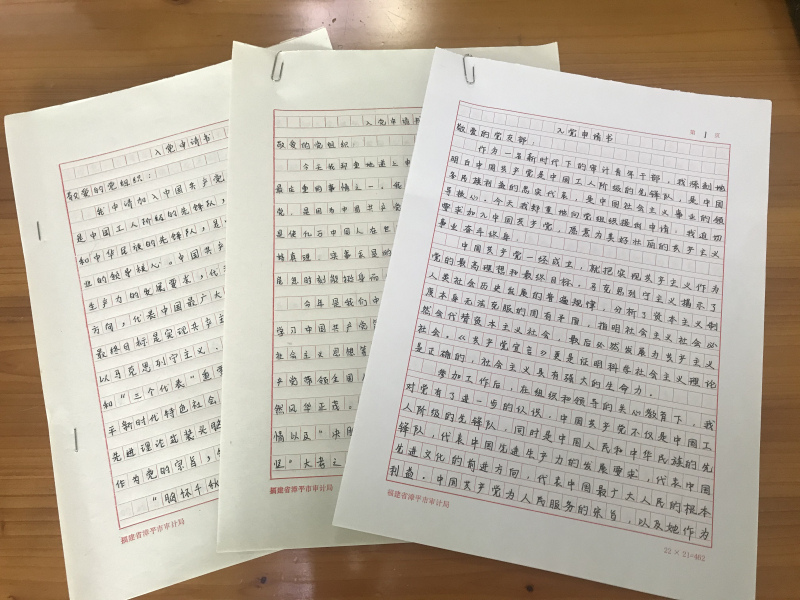 入党申请书
敬爱的党组织：
我申请加入中国共产党
是中国工人阶级的先锋队，
和中华民族的先锋队，是
业的领导核心。中国共产
生产力的发展要求，代
方向，代表中国最广大
最终目标是实现共产主
以马克思列宁主义、
和“三个代表”重
平新时代特色社会
先进理论武装头脑
作为党的宗旨，
“胸怀千秋
福建省漳平市审计局
入党申请书
敬爱的党组织：
今天我郑重地递上申
最庄重的事情之一。我
党，是因为中国共产党
是使亿万中国人在思
持真理、
居思时刻能挺身而
今年是我们中
学习中国共产党
社会主义思想
产党带领全国
然风华正茂。
情以及“决胜
坚”大考之
福建省漳平市审计局
第 1 页
入党申请书
敬爱的党支部：
作为一名新时代下的审计青年干部，我深刻地
明白中国共产党是中国工人阶级的先锋队，是中国
各民族利益的忠实代表，是中国社会主义事业的领
导核心。今天我郑重地向党组织提出申请：我迫切
要求加入中国共产党，愿意为美好壮丽的共产主义
事业奋斗终身。
中国共产党一经成立，就把实现共产主义作为
党的最高理想和最终目标。马克思列宁主义揭示了
人类社会历史发展的普遍规律，分析了资本主义制
度本身无法克服的固有矛盾，指明社会主义社会必
然会代替资本主义社会，最后必然发展为共产主义
社会。《共产党宣言》更是证明科学社会主义理论
是正确的，社会主义具有强大的生命力。
参加工作后，在组织和领导的关心教育下，我
对党有了进一步的认识。中国共产党不仅是中国工
人阶级的先锋队，同时是中国人民和中华民族的先
锋队，代表中国先进生产力的发展要求，代表中国
先进文化的前进方向，代表中国最广大人民的根本
利益。中国共产党为人民服务的宗旨，以及她作为
福建省漳平市审计局
22 × 21=462